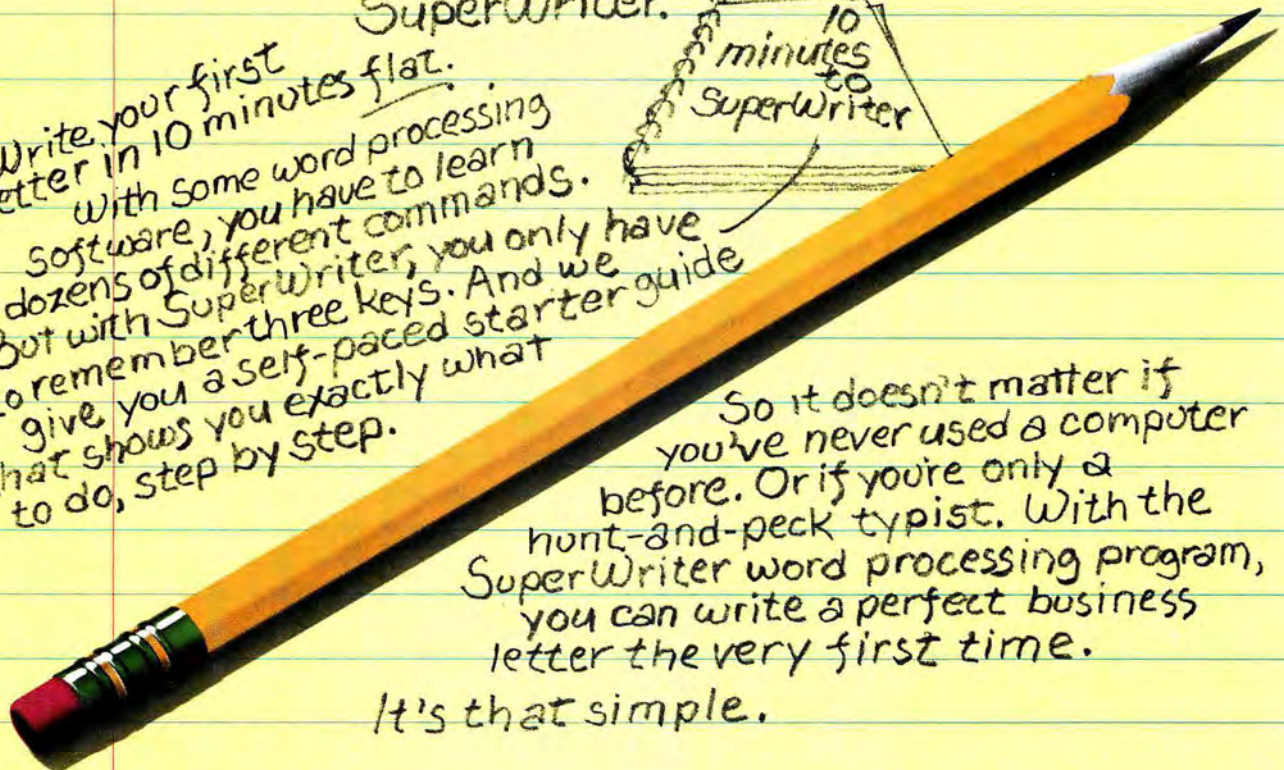 SuperWriter.
10
minutes
to
SuperWriter
Write your first
letter in 10 minutes flat.
With some word processing
software, you have to learn
dozens of different commands.
But with SuperWriter, you only have
to remember three keys. And we
give you a self-paced starter guide
that shows you exactly what
to do, step by step.
So it doesn't matter if
you've never used a computer
before. Or if you're only a
hunt-and-peck typist. With the
SuperWriter word processing program,
you can write a perfect business
letter the very first time.
It's that simple.